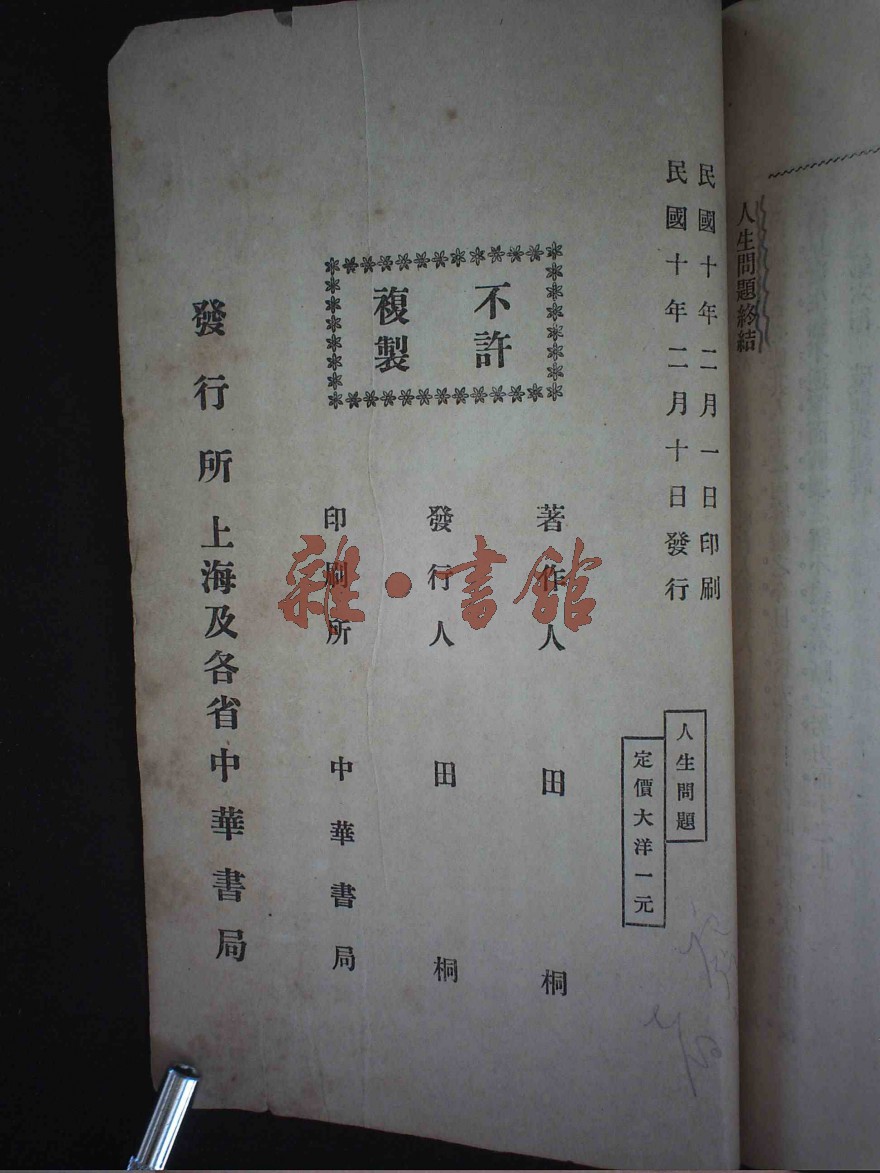 人生問題終結
民國十年二月一日印刷
民國十年二月十日發行
人生問題
定價大洋一元
不許
複製
著作人 田桐
發行人 田桐
印刷所 中華書局
發行所 上海及各省中華書局
雜·書館